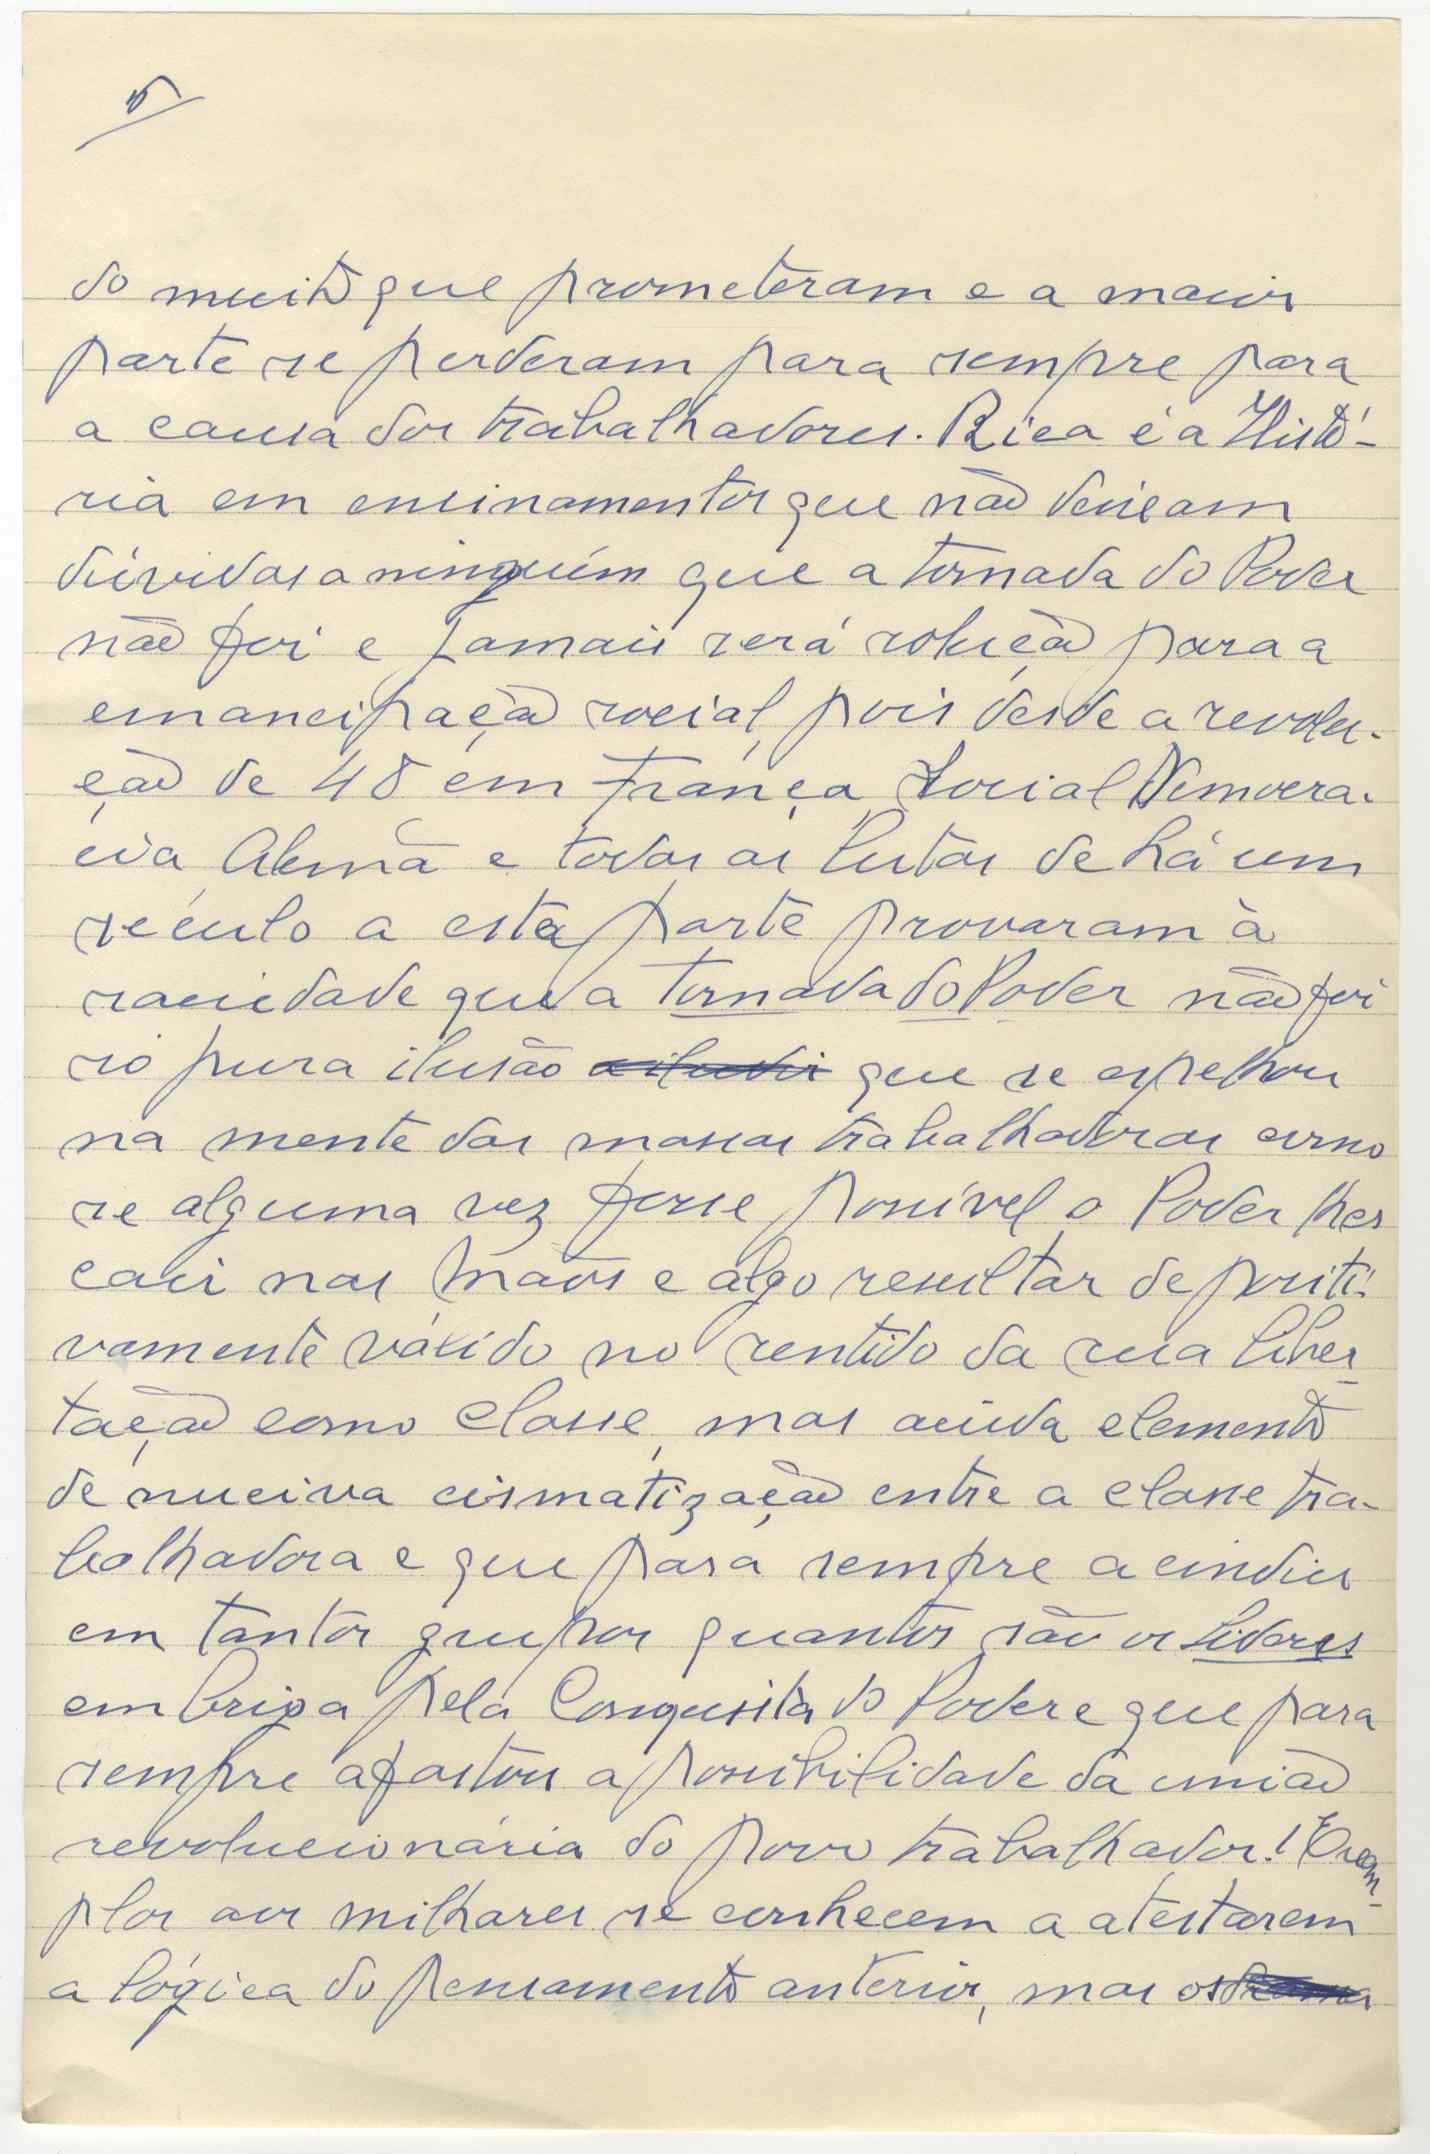 5
do muito que prometeram e a maior
parte se perderam para sempre para
a causa dos trabalhadores. Rica é a Histó-
ria em ensinamentos que não deixam
dúvidas a ninguém que a tomada do Poder
não foi e jamais será solução para a
emancipação social, pois desde a revolu-
ção de 48 em França, Social Democra-
cia Alemã e todas as lutas de há um
século a esta parte provaram à
saciedade que a tomada do Poder não foi
só pura ilusão que se espelhou
na mente das massas trabalhadoras como
se alguma vez fosse possível o Poder lhes
cair nas mãos e algo resultar de positi-
vamente válido no sentido da sua liber-
tação como classe, mas ainda elemento
de nociva cismatização entre a classe tra-
balhadora e que para sempre a cindiu
em tantos grupos quantos são os Lideres
em briga pela Conquista do Poder e que para
sempre afastou a possibilidade da união
revolucionária do povo trabalhador! Exem-
plos aos milhares se conhecem a atestarem
a lógica do pensamento anterior, mas os